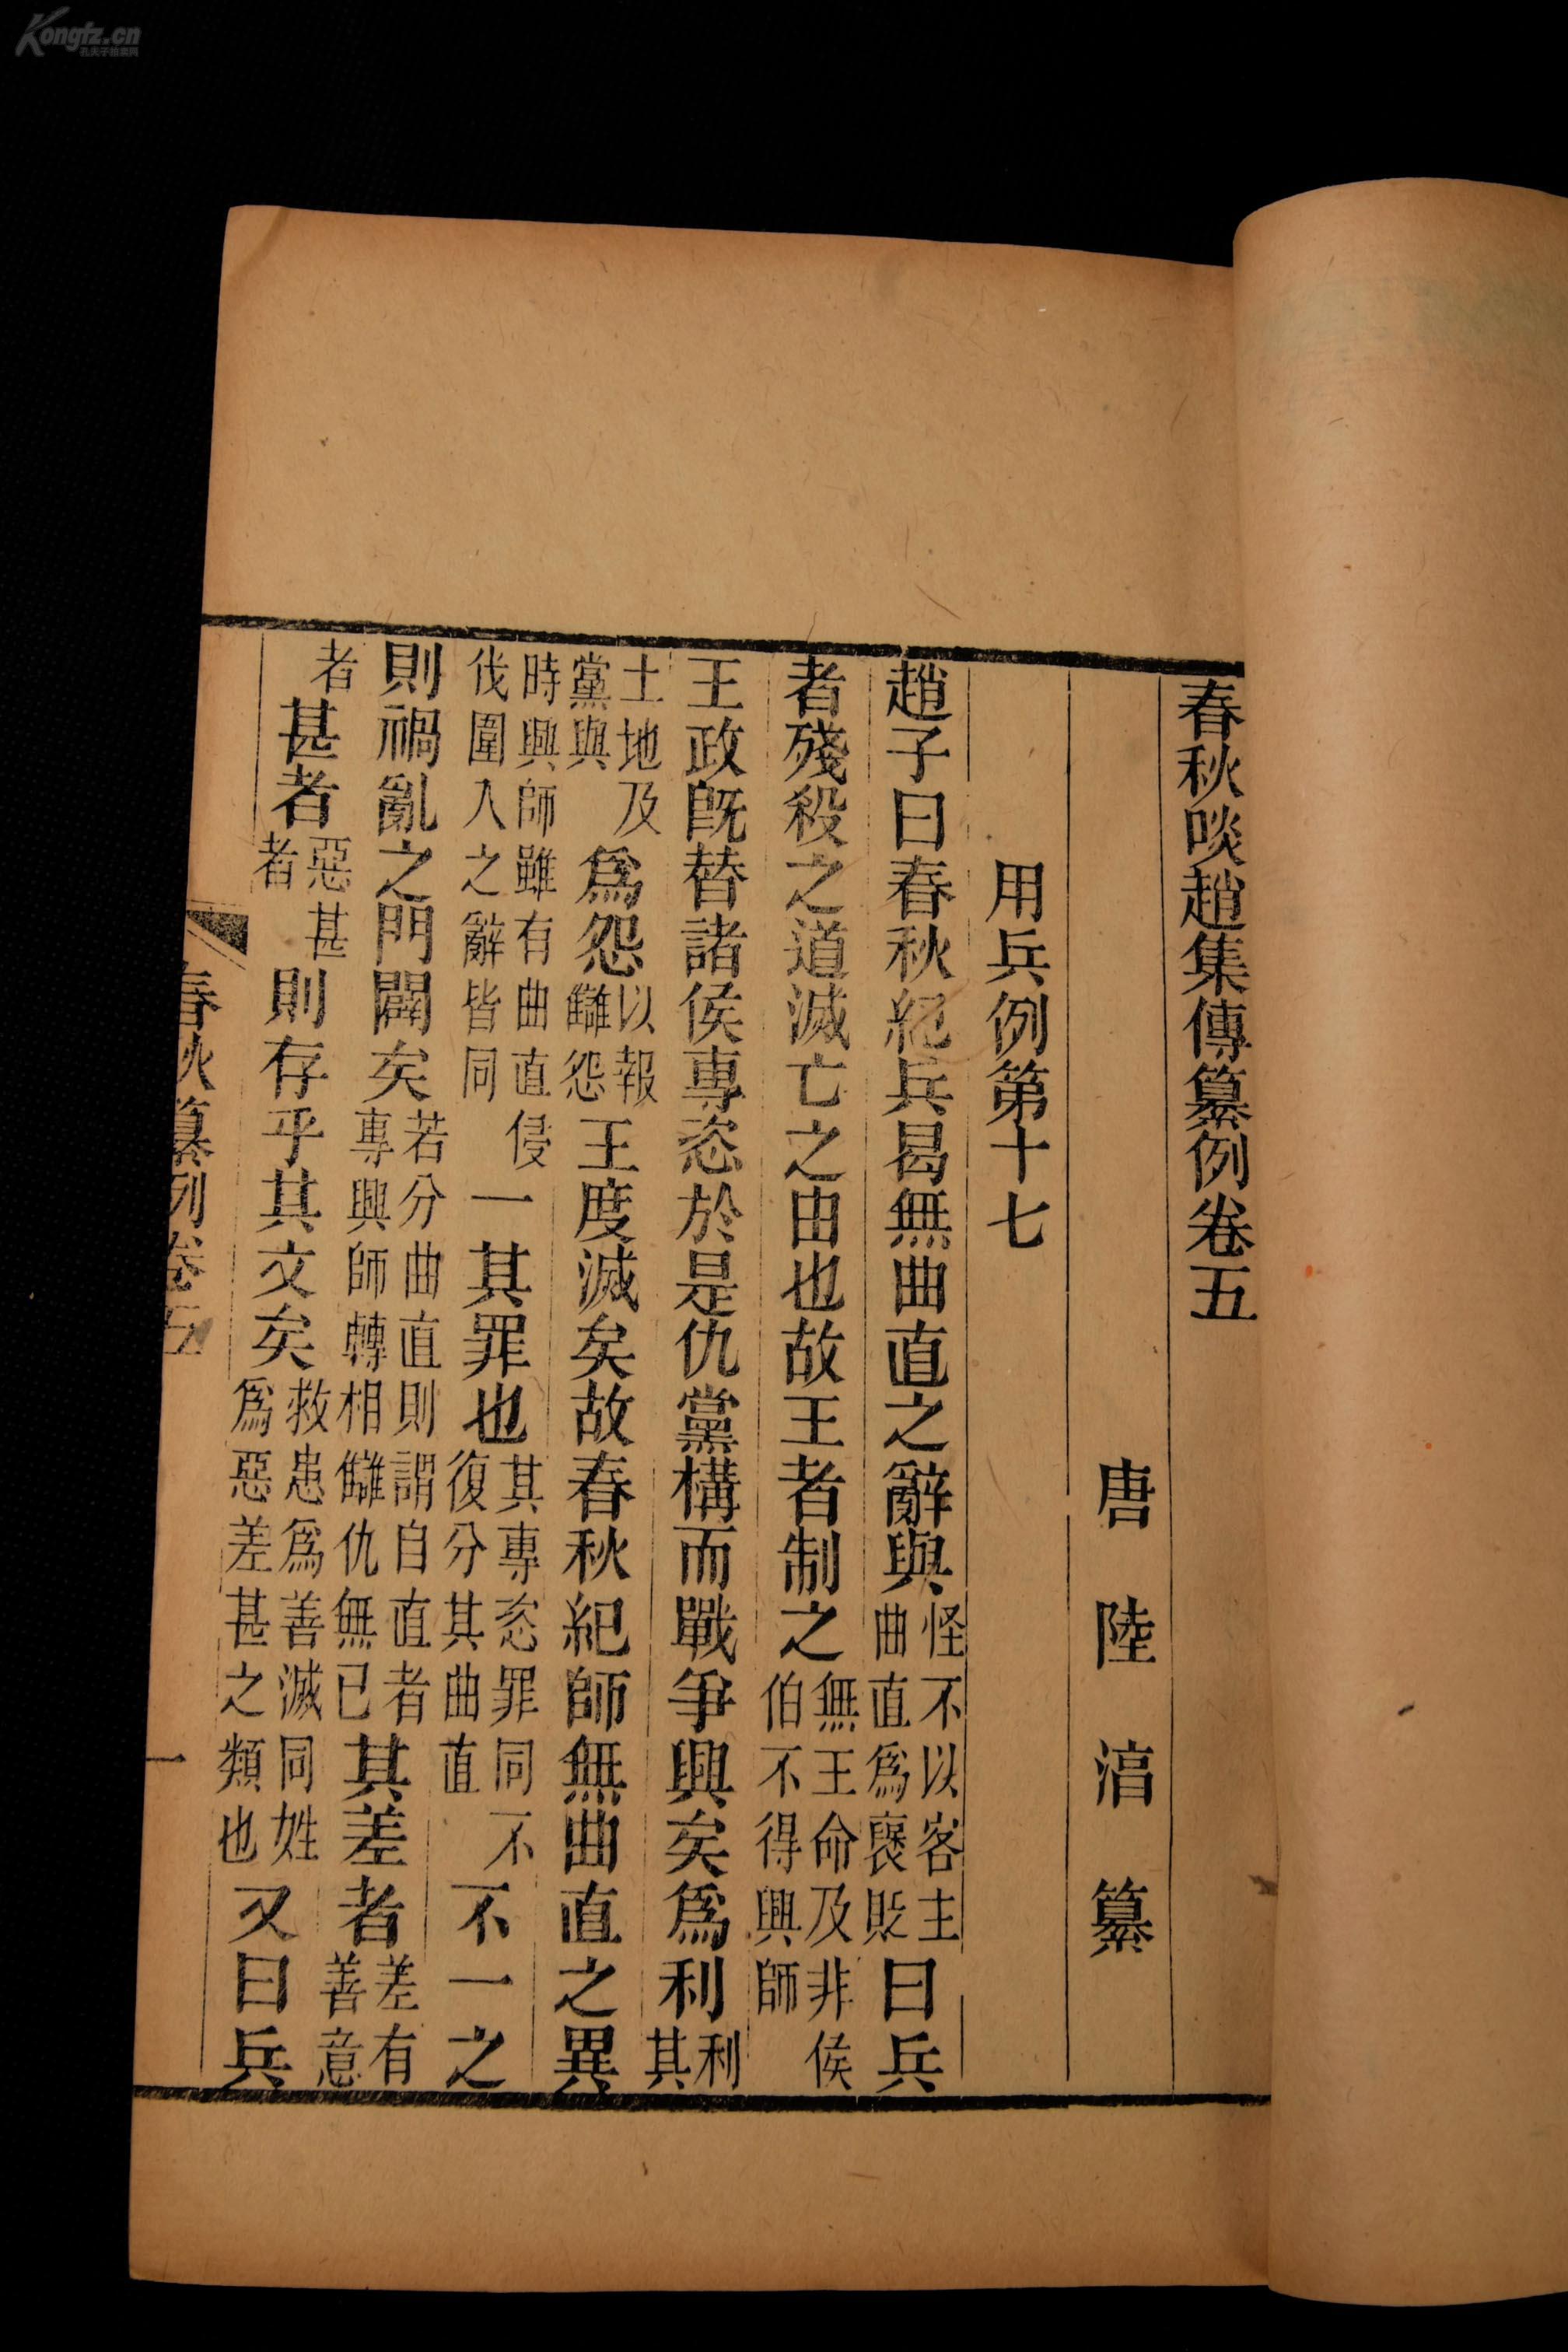 春秋啖趙集傳纂例卷五
唐陸淳纂
用兵例第十七
趙子曰春秋紀兵曷無曲直之辭與怪不以客主曲直爲褒貶曰兵
者殘殺之道滅亡之由也故王者制之無王命及非侯伯不得興師
王政旣替諸侯專恣於是仇黨構而戰爭興矣爲利利其
土地及黨與爲怨以報讎怨王度滅矣故春秋紀師無曲直之異
時興師雖有曲直侵伐圍入之辭皆同一其罪也其專恣罪同不復分其曲直不一之
則禍亂之門闢矣若分曲直則謂自直者專興師轉相讎仇無已其差者差有善意
者甚者惡甚者則存乎其文矣救患爲善滅同姓爲惡差甚之類也又曰兵
春秋纂例卷五
一
Kongfz.cn
孔夫子拍卖网